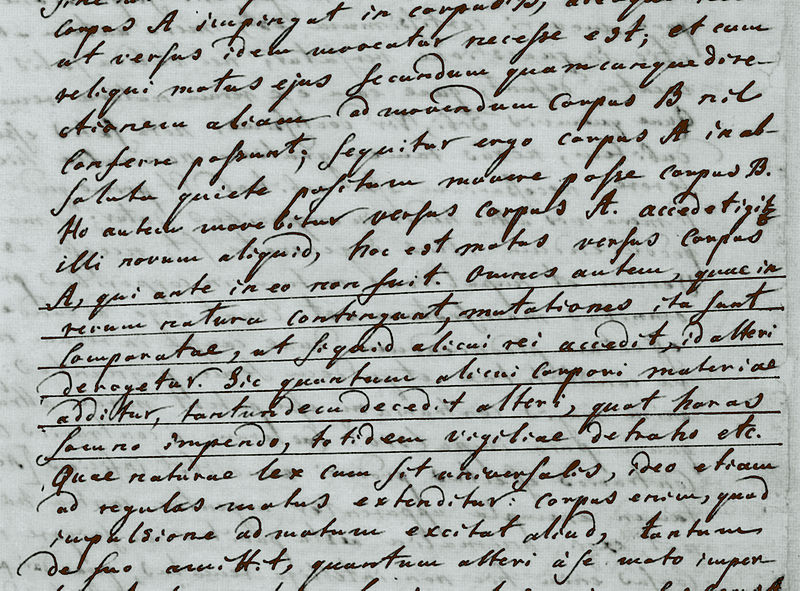 corpus A impingat in corpus B,
ut versus idem moveatur necesse est; et cum
reliqui motus ejus secundum quamcunque dire-
ctionem aliam ad movendum Corpus B nil
Conferre possunt; sequitur ergo corpus A in ab-
soluta quiete positum movere posse corpus B.
Ho autem movebitur versus corpus A. accedet igit
illi novum aliquid, hoc est motus versus Corpus
A, qui ante in eo non fuit. Omnes autem, quae in
rerum natura contingunt, mutationes ita sunt
Comparatae, ut si quid alicui rei accedit, id alteri
derogetur. Sic quantum alicui corpori materiae
additur, tantundem decedit alteri, quot horas
somno impendo, totidem vigiliae detraho etc.
Quae naturae lex cum sit universalis, ideo etiam
ad regulas motus extenditur: corpus enim, quod
impulsione ad motum excitat aliud, tantum
de suo amittit, quantum alteri à se moto imper